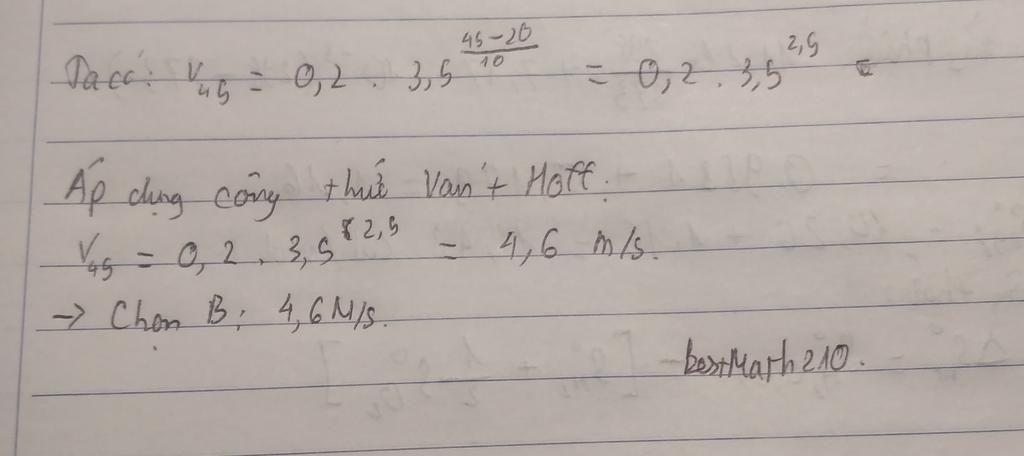 Ta có: V₄₅ = 0,2 . 3,5^((45-20)/10) = 0,2 . 3,5^2,5 =
Áp dụng công thức Van't Hoff.
V₄₅ = 0,2 . 3,5^2,5 = 4,6 m/s.
→ Chọn B: 4,6 M/s.
bestMath210.